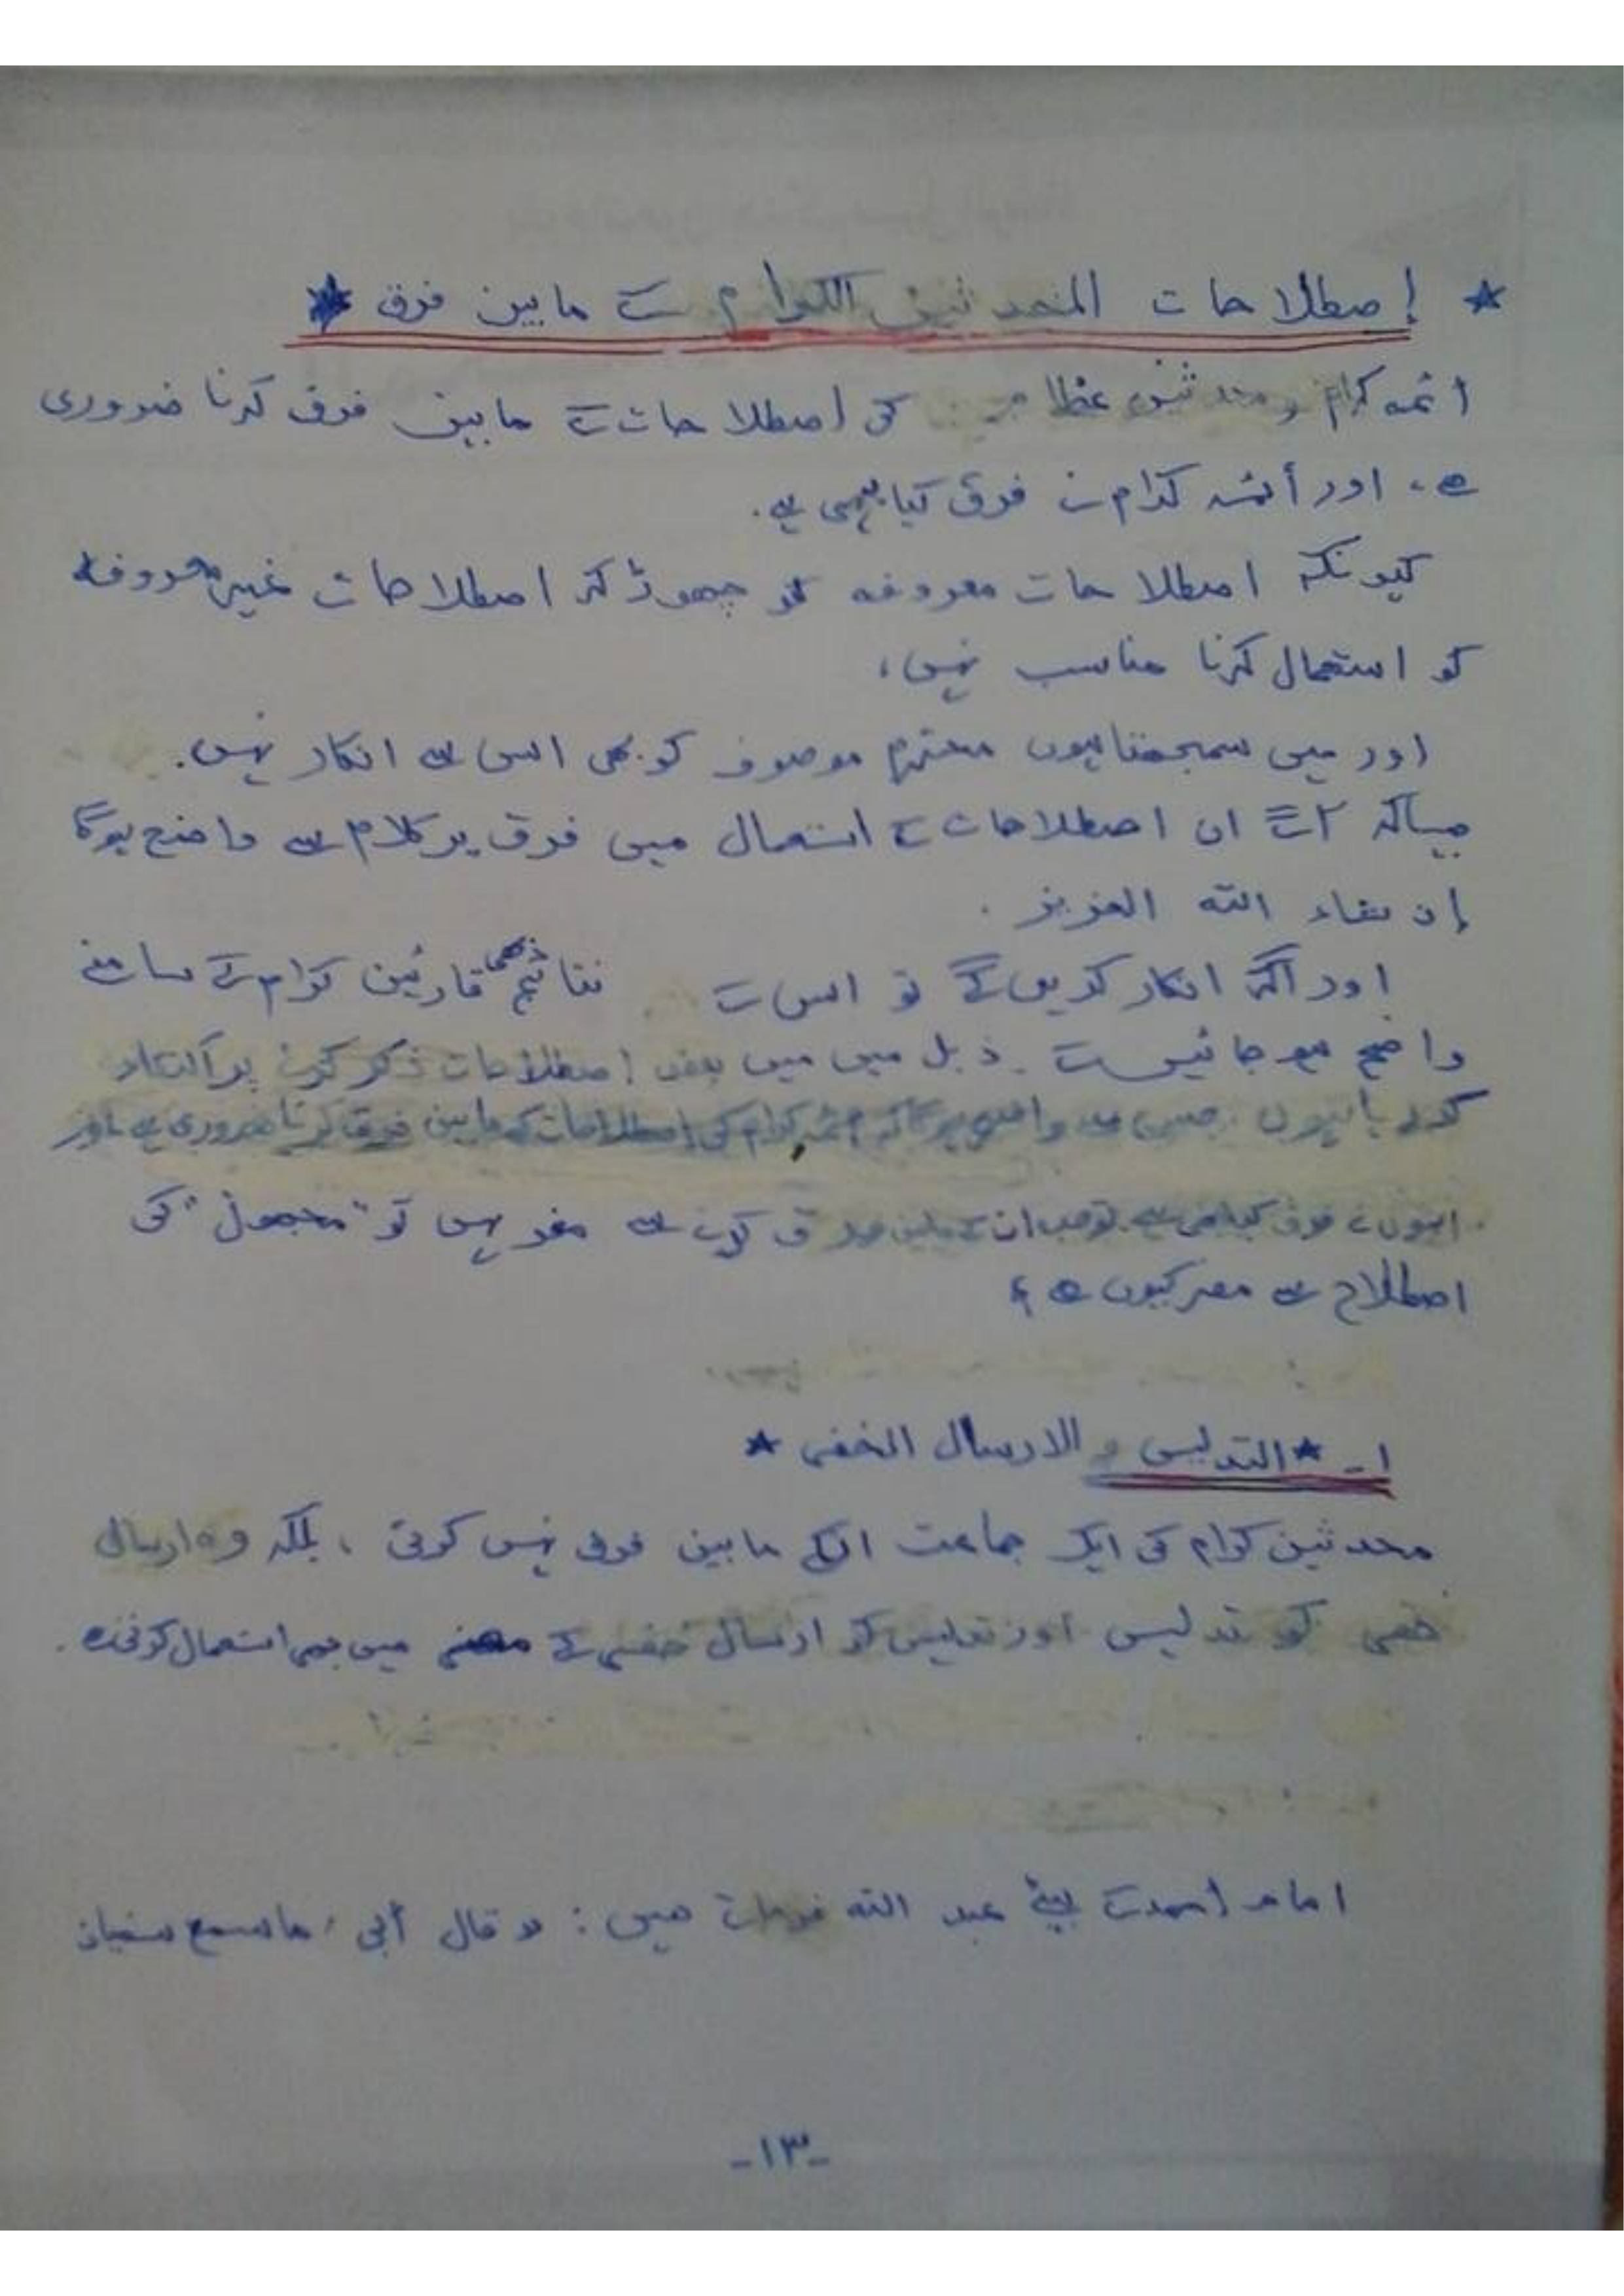 * إصطلاحات المحدثین الکرام کے مابین فرق *
أئمہ کرام و محدثین عظام کی اصطلاحات کے مابین فرق کرنا ضروری
ہے، اور أئمہ کرام نے فرق کیا بھی ہے.
کیونکہ اصطلاحات معروفہ کو چھوڑ کر اصطلاحات غیر معروفہ
کو استعمال کرنا مناسب نہیں،
اور میں سمجھتا ہوں محترم موصوف کو بھی اس سے انکار نہیں.
جیسا کہ آگے ان اصطلاحات کے استعمال میں فرق پر کلام سے واضح ہوگا
إن شاء اللہ العزیز .
اور اگر انکار کریں گے تو اس کے نتائج بھی قارئین کرام کے سامنے
واضح ہو جائیں گے . ذیل میں میں بعض اصطلاحات ذکر کرنے پر اکتفاء
کر رہا ہوں جس سے واضح ہوگا کہ ائمہ کرام کی اصطلاحات کے مابین فرق کرنا ضروری ہے اور
انہوں نے فرق کیا بھی ہے تو جب ان کے مابین فرق کرنے سے مفر نہیں تو "مجھول" کی
اصطلاح سے مفر کیوں ہے ؟
١ـ * التدلیس و الارسال الخفی *
محدثین کرام کی ایک جماعت انکے مابین فرق نہیں کرتی ، بلکہ وہ ارسال
خفی کو تدلیس اور تدلیس کو ارسال خفی کے معنی میں بھی استعمال کرتی ہے .
امام احمد کے بیٹے عبد اللہ فرماتے ہیں : و قال أبی : ما سمع سفیان
-١٣-